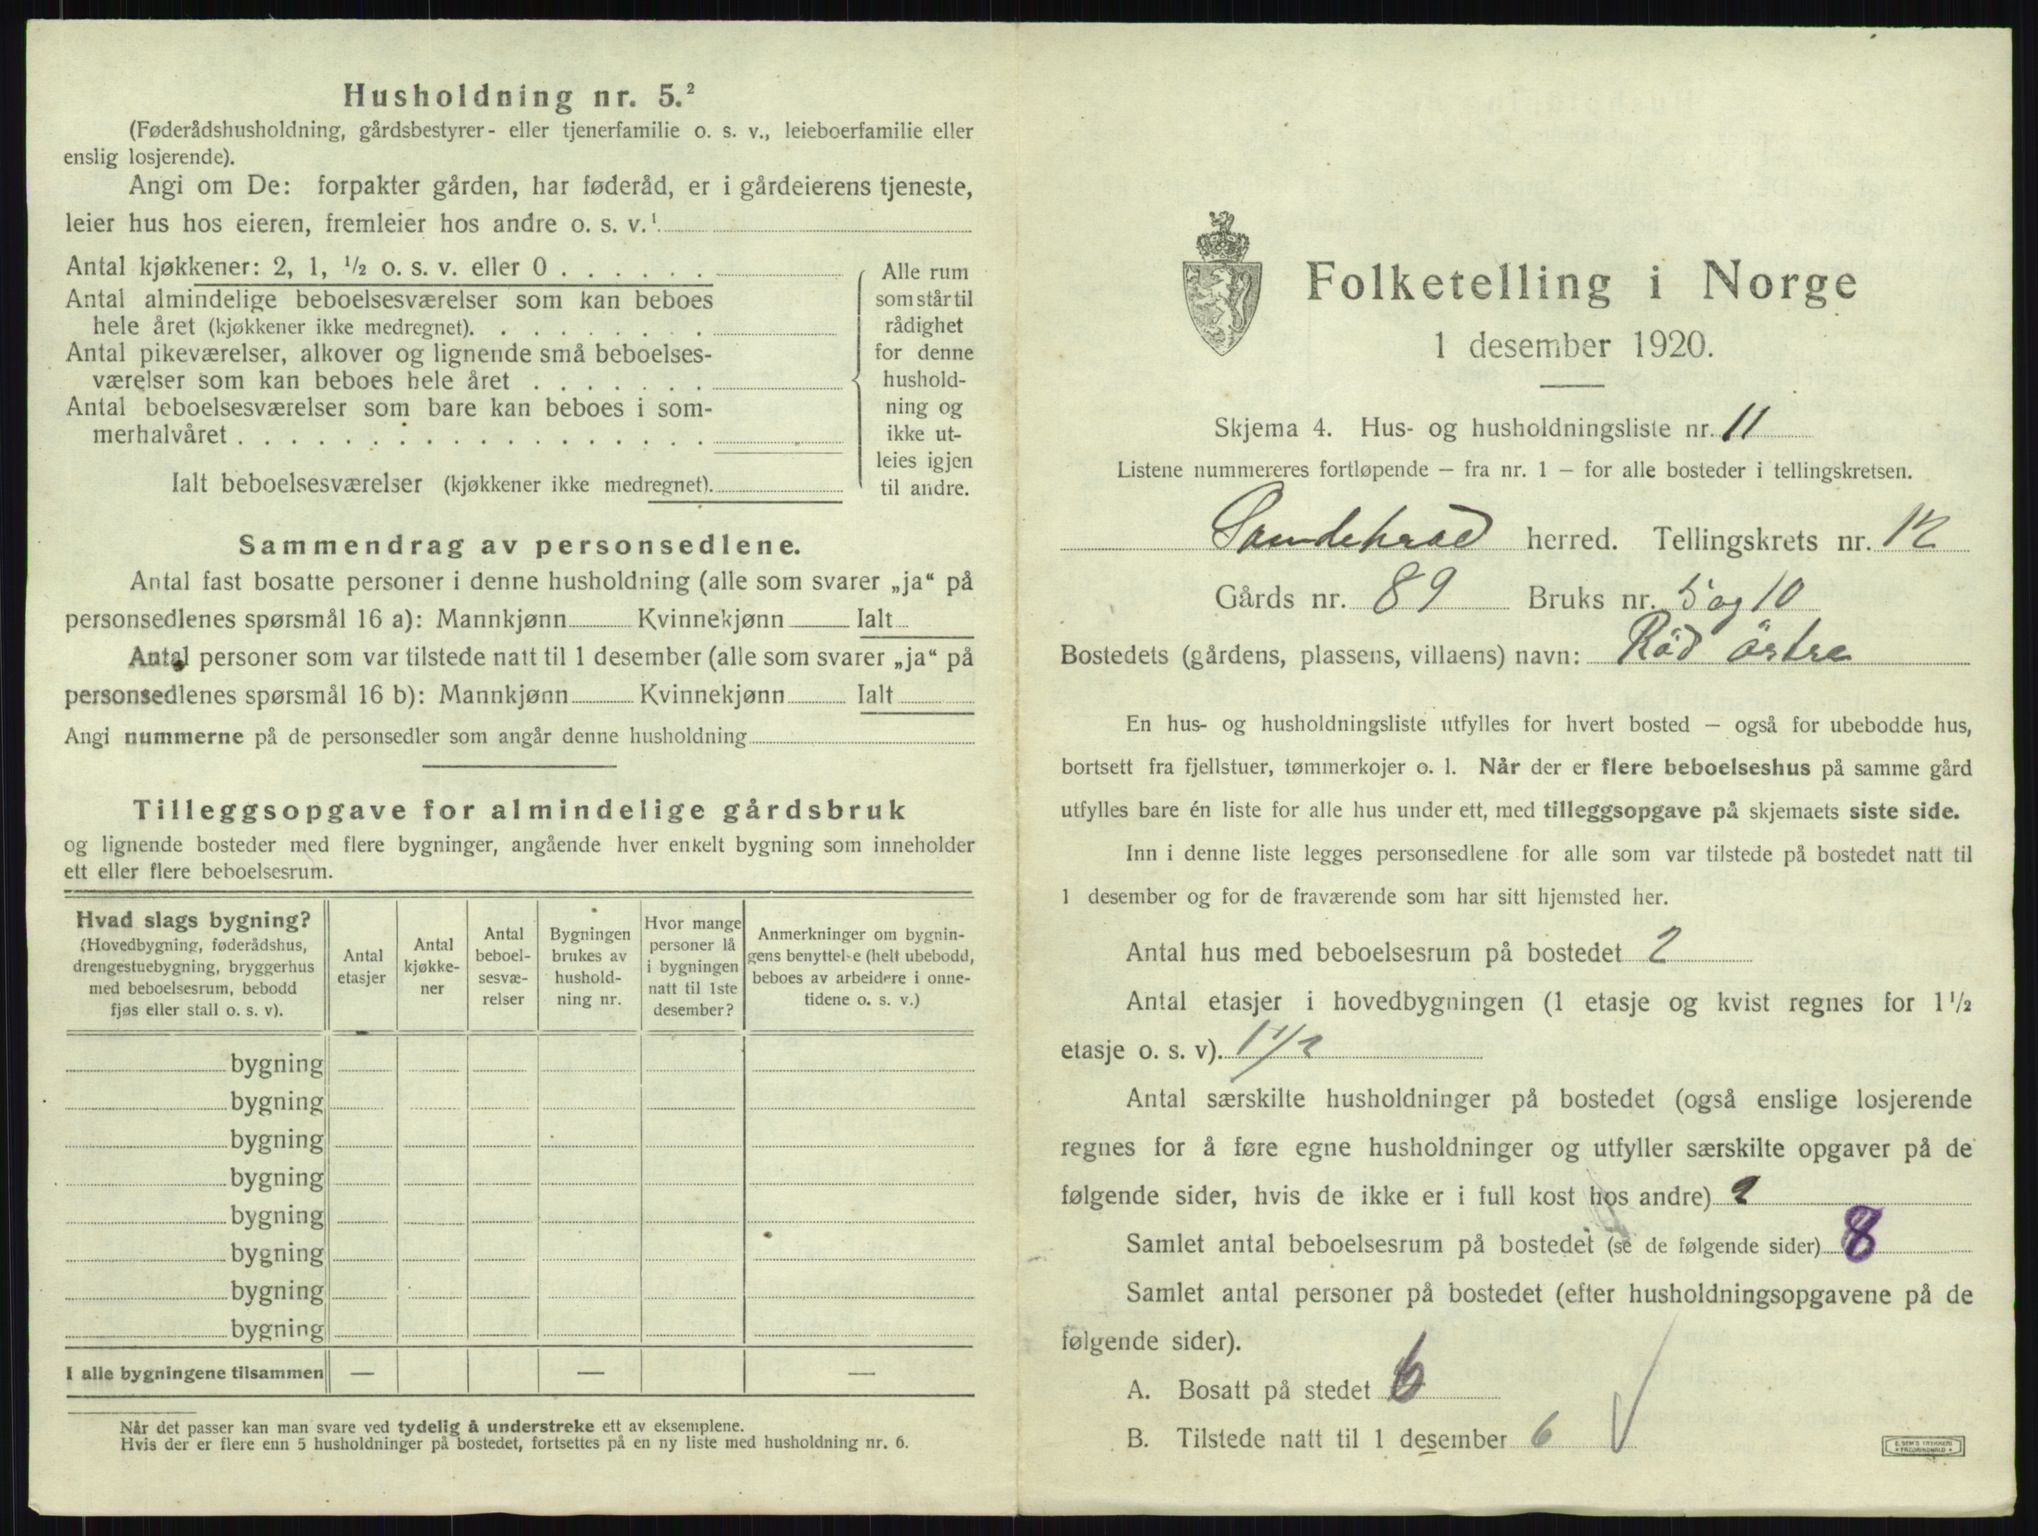 Husholdning nr. 5.²
(Føderådshusholdning, gårdsbestyrer- eller tjenerfamilie o. s. v., leieboerfamilie eller
enslig losjerende).
Angi om De: forpakter gården, har føderåd, er i gårdeierens tjeneste,
leier hus hos eieren, fremleier hos andre o. s. v.¹
Antal kjøkkener: 2, 1, ½ o. s. v. eller 0 . . . . . .
Antal almindelige beboelsesværelser som kan beboes
hele året (kjøkkener ikke medregnet). . . . . . . . .
Antal pikeværelser, alkover og lignende små beboelses-
værelser som kan beboes hele året . . . . . . .
Antal beboelsesværelser som bare kan beboes i som-
merhalvåret . . . . . . . . . . . . . . . . . .
Ialt beboelsesværelser (kjøkkener ikke medregnet).
Alle rum
som står til
rådighet
for denne
hushold-
ning og
ikke ut-
leies igjen
til andre.
Sammendrag av personsedlene.
Antal fast bosatte personer i denne husholdning (alle som svarer „ja“ på
personsedlenes spørsmål 16 a): Mannkjønn Kvinnekjønn Ialt
Antal personer som var tilstede natt til 1 desember (alle som svarer „ja“ på
personsedlenes spørsmål 16 b): Mannkjønn Kvinnekjønn Ialt
Angi nummerne på de personsedler som angår denne husholdning
Tilleggsopgave for almindelige gårdsbruk
og lignende bosteder med flere bygninger, angående hver enkelt bygning som inneholder
ett eller flere beboelsesrum.
Hvad slags bygning?
(Hovedbygning, føderådshus,
drengestuebygning, bryggerhus
med beboelsesrum, bebodd
fjøs eller stall o. s. v).
Antal
etasjer
Antal
kjøkke-
ner
Antal
beboel-
sesvæ-
relser
Bygningen
brukes av
hushold-
ning nr.
Hvor mange
personer lå
i bygningen
natt til 1ste
desember?
Anmerkninger om bygnin-
gens benyttelse (helt ubebodd,
beboes av arbeidere i onne-
tidene o. s. v.)
bygning
bygning
bygning
bygning
bygning
bygning
bygning
bygning
I alle bygningene tilsammen — — —
Når det passer kan man svare ved tydelig å understreke ett av eksemplene.
Hvis der er flere enn 5 husholdninger på bostedet, fortsettes på en ny liste med husholdning nr. 6.
Folketelling i Norge
1 desember 1920.
Skjema 4. Hus- og husholdningsliste nr. 11
Listene nummereres fortløpende — fra nr. 1 — for alle bosteder i tellingskretsen.
Sandeherad herred. Tellingskrets nr. 12
Gårds nr. 89 Bruks nr. 5 og 10
Bostedets (gårdens, plassens, villaens) navn: Röd östre
En hus- og husholdningsliste utfylles for hvert bosted — også for ubebodde hus,
bortsett fra fjellstuer, tømmerkojer o. l. Når der er flere beboelseshus på samme gård
utfylles bare én liste for alle hus under ett, med tilleggsopgave på skjemaets siste side.
Inn i denne liste legges personsedlene for alle som var tilstede på bostedet natt til
1 desember og for de fraværende som har sitt hjemsted her.
Antal hus med beboelsesrum på bostedet 2
Antal etasjer i hovedbygningen (1 etasje og kvist regnes for 1½
etasje o. s. v). 1 1/2
Antal særskilte husholdninger på bostedet (også enslige losjerende
regnes for å føre egne husholdninger og utfyller særskilte opgaver på de
følgende sider, hvis de ikke er i full kost hos andre) 2
Samlet antal beboelsesrum på bostedet (se de følgende sider) 8
Samlet antal personer på bostedet (efter husholdningsopgavene på de
følgende sider).
A. Bosatt på stedet 6
B. Tilstede natt til 1 desember 6